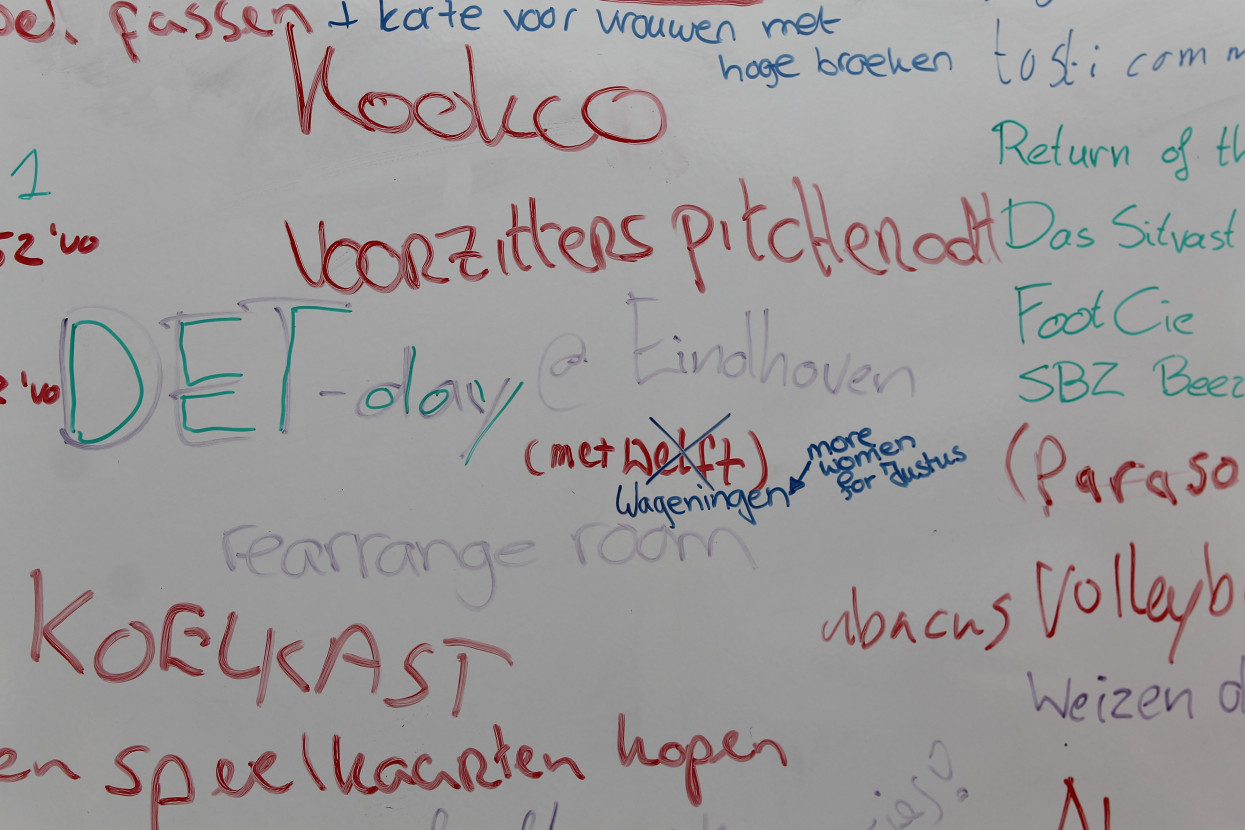 fassen + korte voor vrouwen met
hoge broeken
tosti comm
Koekco
1
Return of th
sz 'vo
voorzitters pitchenodt
Das Sitvast
FootCie
'vo
DET-day @ Eindhoven
SBZ Beez
(met Delft)
Wageningen
more
women
for Justus
(Paraso
rearrange room
abacus Volleyb
KOELKAST
Weizen d
en speelkaarten kopen